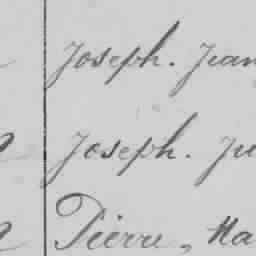 Joseph. Jean
Joseph. Ju
Pierre, Ma